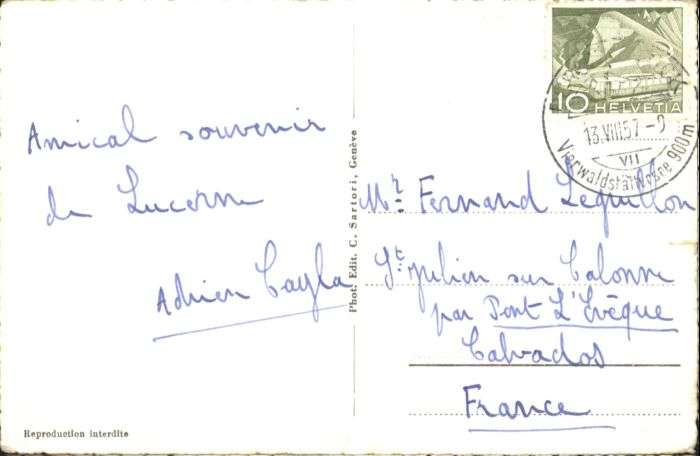 Amical souvenir
de Lucerne
Adrien Cayla
Reproduction interdite
Phot. Edit. C. Sartori, Genève
10 HELVETIA
13.VIII.57-9
VII
Vierwaldstättersee 900m
Mr. Fernand Lequillon
St. Julien sur Calonne
par Pont L'Evêque
Calvados
France